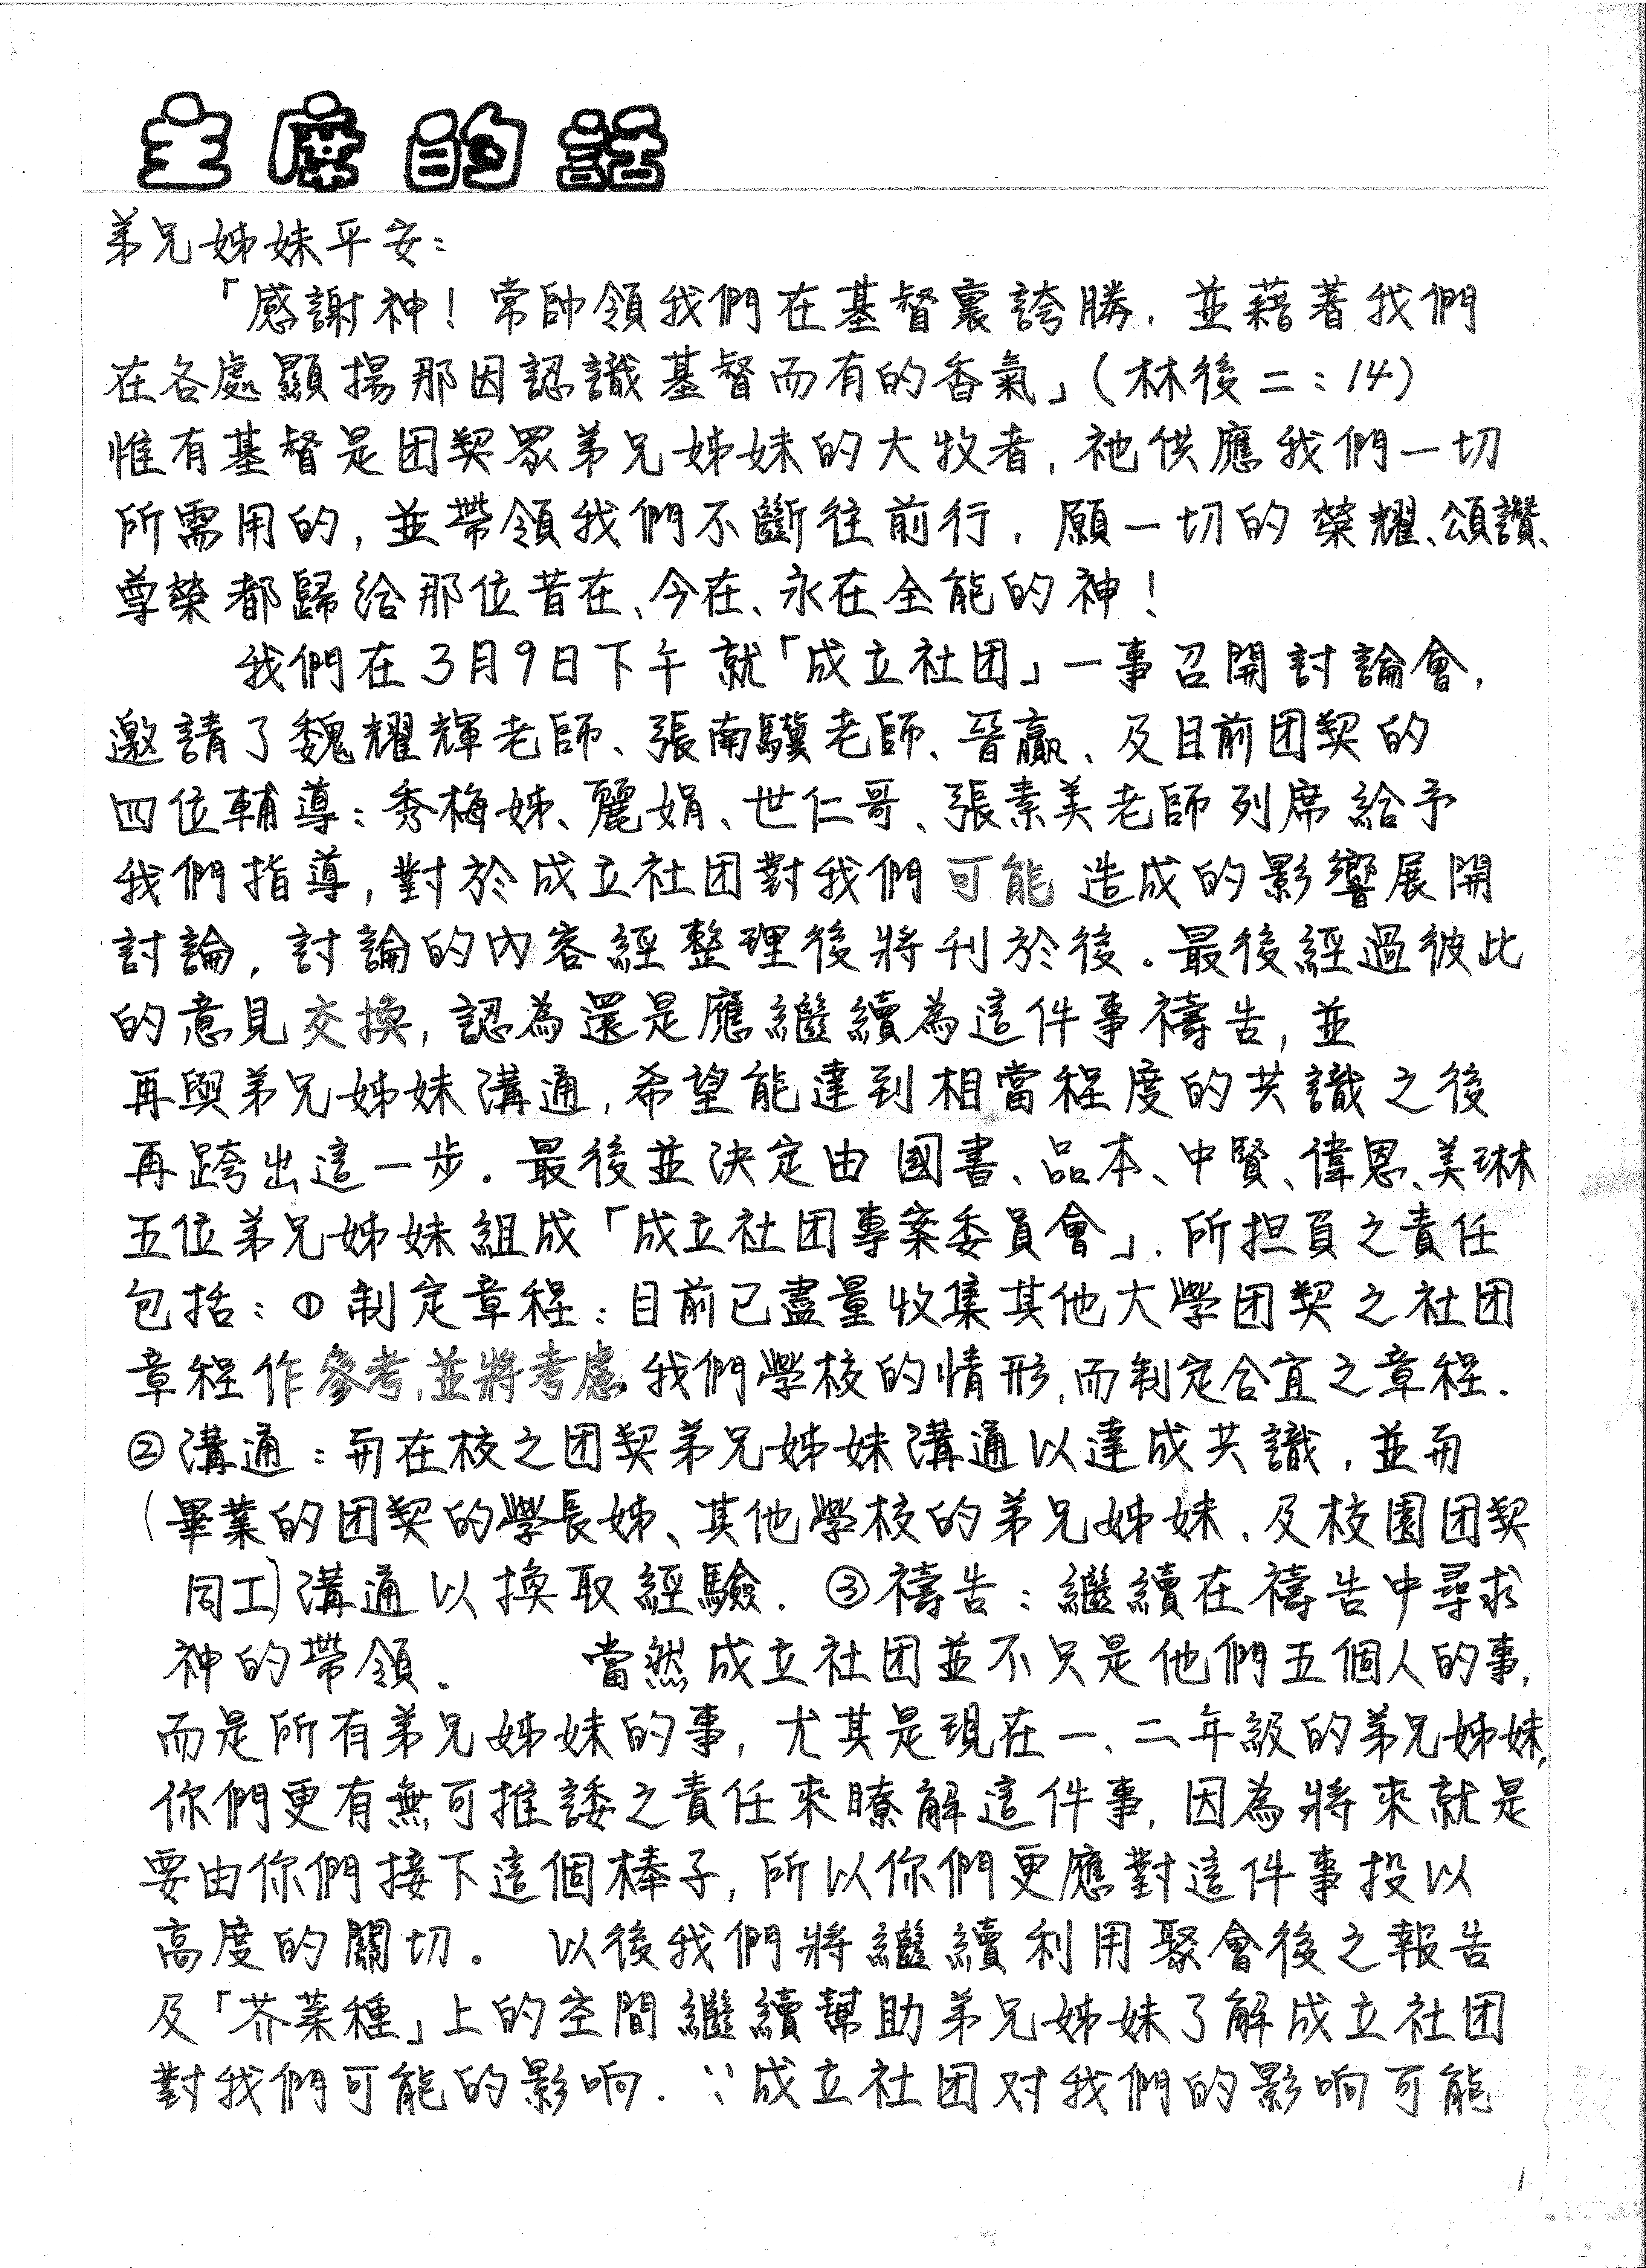 主席的話
弟兄姊妹平安：
「感謝神！常帥領我們在基督裏誇勝，並藉著我們
在各處顯揚那因認識基督而有的香氣」（林後二：14）
惟有基督是团契眾弟兄姊妹的大牧者，祂供應我們一切
所需用的，並帶領我們不斷往前行．願一切的榮耀、頌讚、
尊榮都歸給那位昔在、今在、永在全能的神！
我們在3月9日下午就「成立社团」一事召開討論會，
邀請了魏耀輝老師、張南驥老師、晉贏、及目前团契的
四位輔導：秀梅姊、麗娟、世仁哥、張素美老師列席給予
我們指導，對於成立社团對我們可能造成的影響展開
討論，討論的內容經整理後將刊於後。最後經過彼此
的意見交換，認為還是應繼續為這件事禱告，並
再與弟兄姊妹溝通，希望能達到相當程度的共識之後
再跨出這一步．最後並決定由國書、品本、中賢、偉恩、美琳
五位弟兄姊妹組成「成立社团專案委員會」．所担負之責任
包括：①制定章程：目前已盡量收集其他大學团契之社团
章程作參考，並將考慮我們學校的情形，而制定合宜之章程．
②溝通：与在校之团契弟兄姊妹溝通以達成共識，並与
（畢業的团契的學長姊、其他學校的弟兄姊妹、及校園团契
同工）溝通以換取經驗．③禱告：繼續在禱告中尋求
神的帶領。 當然成立社团並不只是他們五個人的事，
而是所有弟兄姊妹的事，尤其是現在一、二年級的弟兄姊妹，
你們更有無可推諉之責任來瞭解這件事，因為將來就是
要由你們接下這個棒子，所以你們更應對這件事投以
高度的關切。 以後我們將繼續利用聚會後之報告
及「芥菜種」上的空間繼續幫助弟兄姊妹了解成立社团
對我們可能的影响．∵成立社团对我們的影响可能
1